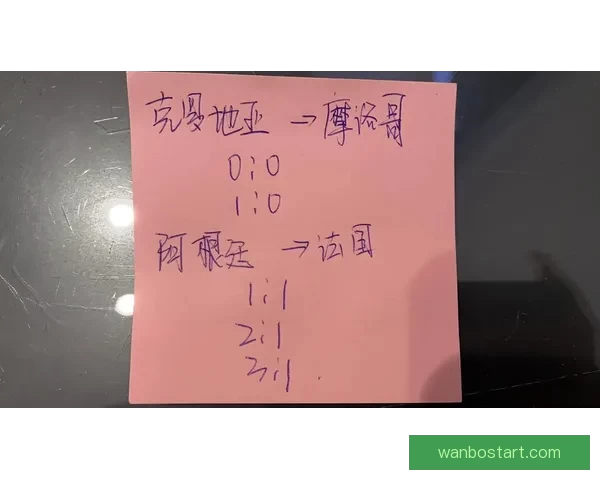 克罗地亚 → 摩洛哥
0:0
1:0
阿根廷 → 法国
1:1
2:1
3:1.
wanbostart.com